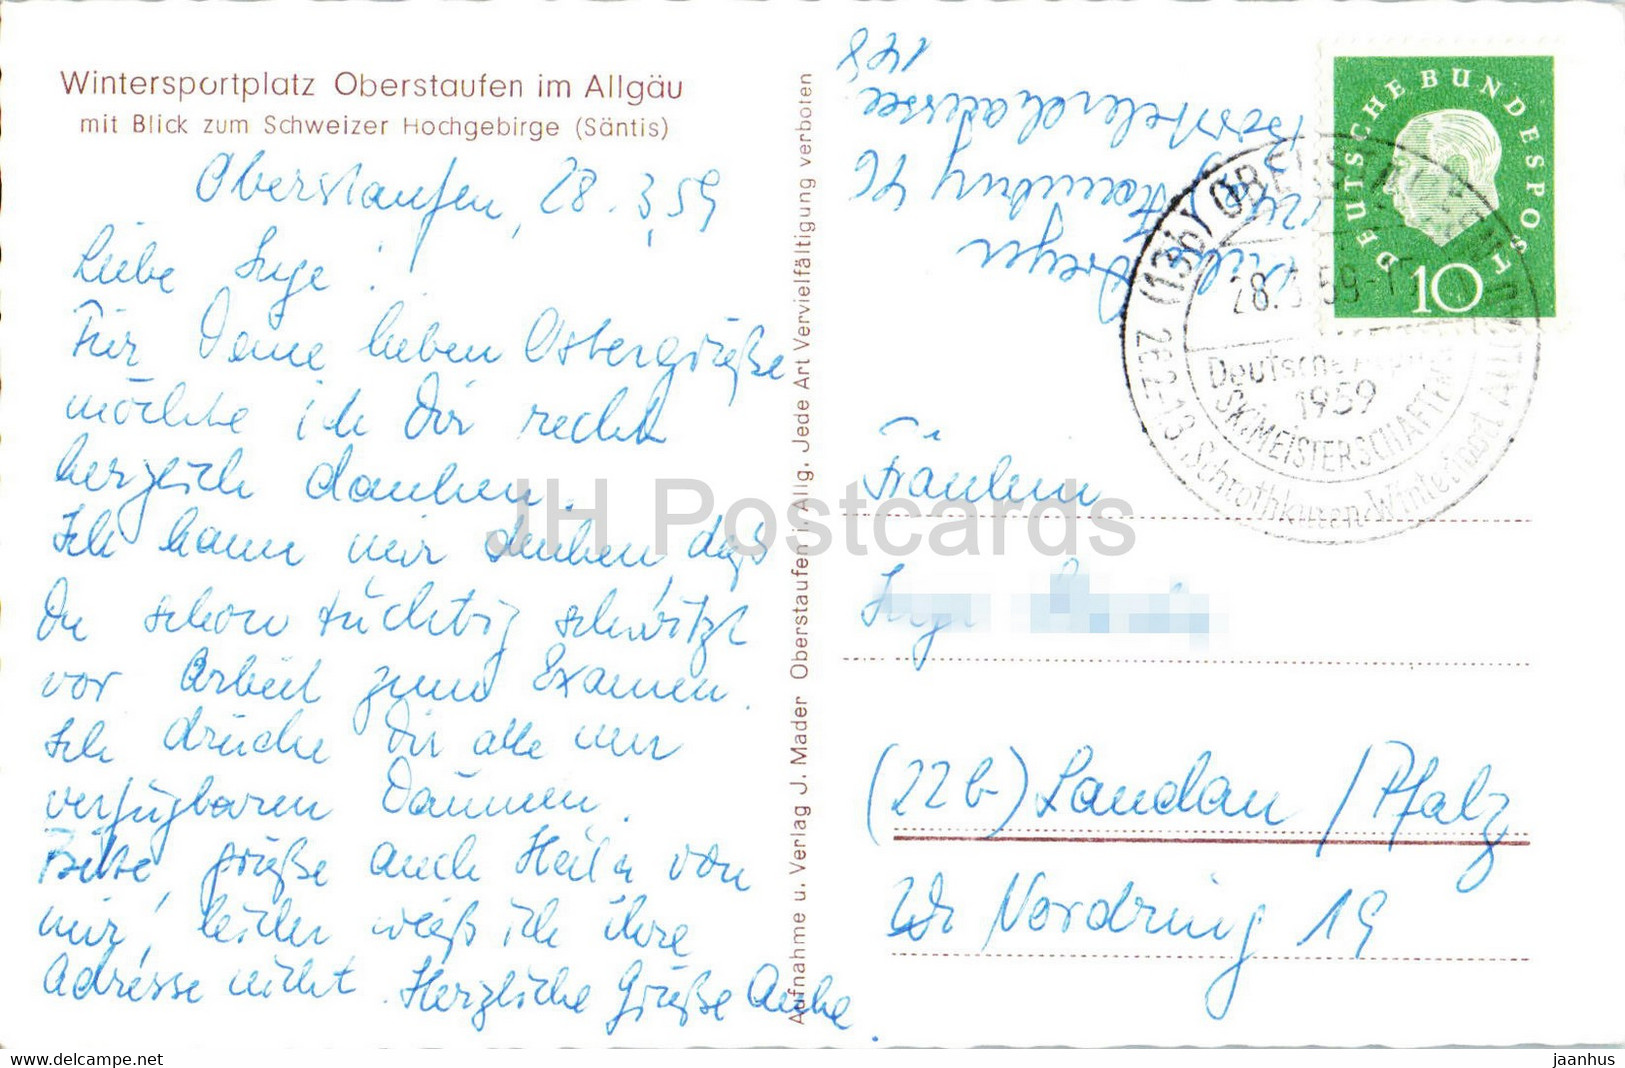 Wintersportplatz Oberstaufen im Allgäu
mit Blick zum Schweizer Hochgebirge (Säntis)
Oberstaufen, 28.3.59
Liebe Inge!
Für Deine lieben Ostergrüße
möchte ich Dir recht
herzlich danken.
Ich kann mir denken, daß
Du schon tüchtig schwitzt
vor Arbeit zum Examen.
Ich drücke Dir alle mir
verfügbaren Daumen.
Bitte, grüße auch von
mir, leider weiß ich ihre
Adresse nicht. Herzliche Grüße Anke.
Aufnahme u. Verlag J. Mader Oberstaufen i. Allg. Jede Art Vervielfältigung verboten
Dreyer
Hamburg
128
DEUTSCHE BUNDESPOST
10
(13b) OBERSTAUFEN
28.3.59-15
Deutsche
1959
SKIMEISTERSCHAFTEN
Schrothkuren-Wintersport
Fräulein
Inge
(22b) Landau / Pfalz
Nordring 19
JH Postcards
www.delcampe.net
jaanhus